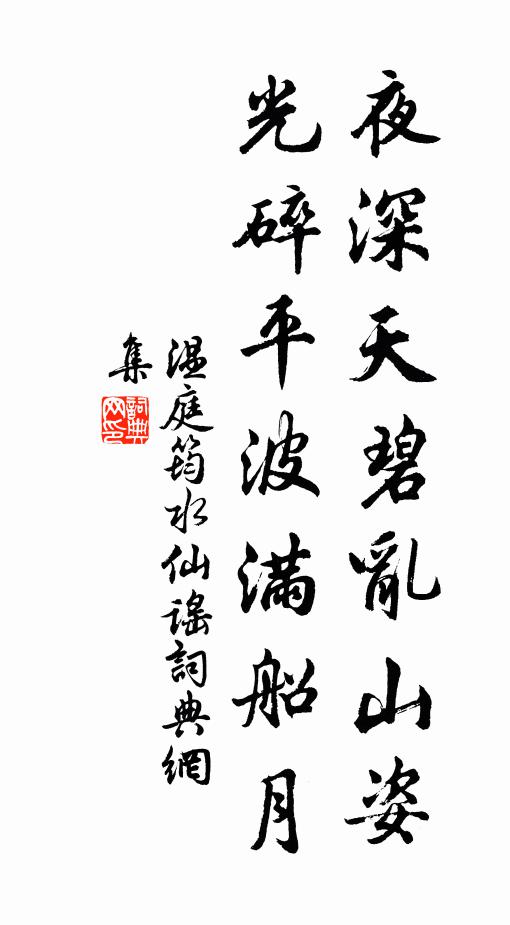 夜深天碧亂山姿
光碎平波滿船月
溫庭筠水仙謠詞典網
集
詞典
网印